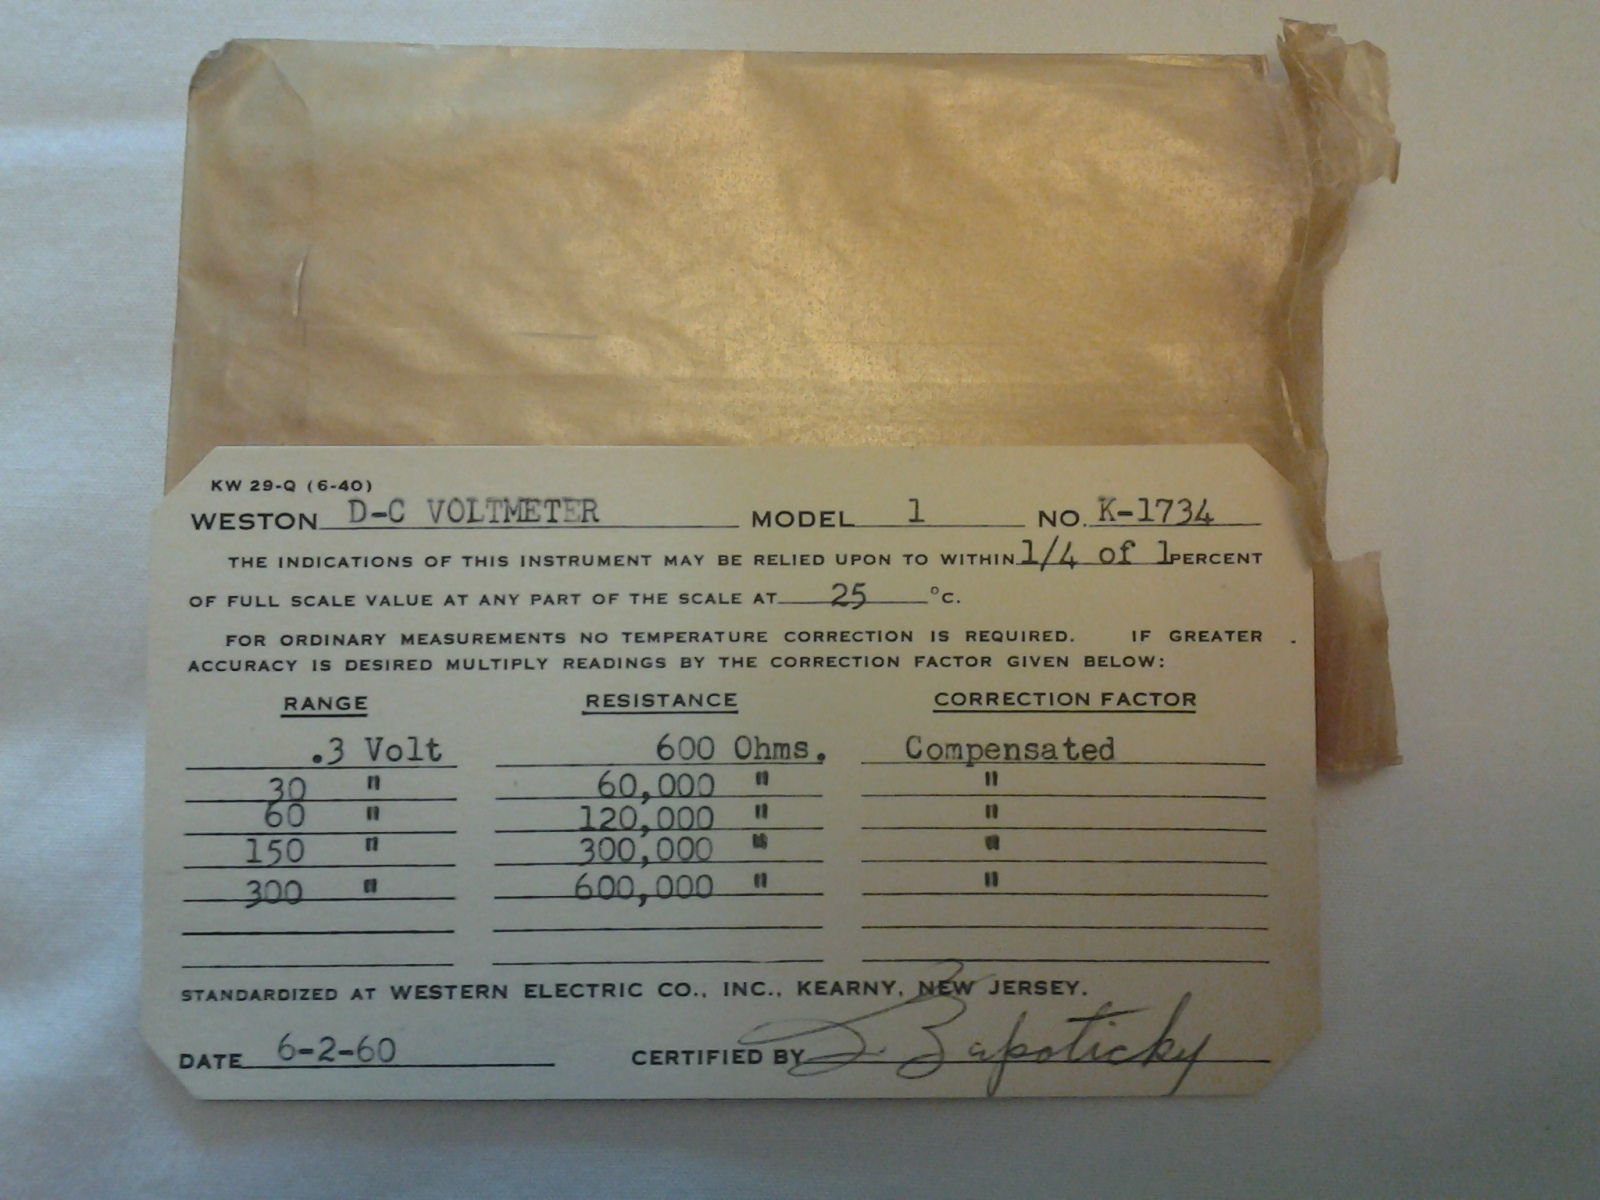 KW 29-Q (6-40)
WESTON D-C VOLTMETER MODEL 1 NO. K-1734
THE INDICATIONS OF THIS INSTRUMENT MAY BE RELIED UPON TO WITHIN 1/4 of 1 PERCENT
OF FULL SCALE VALUE AT ANY PART OF THE SCALE AT 25 °C.
FOR ORDINARY MEASUREMENTS NO TEMPERATURE CORRECTION IS REQUIRED. IF GREATER
ACCURACY IS DESIRED MULTIPLY READINGS BY THE CORRECTION FACTOR GIVEN BELOW:
RANGE RESISTANCE CORRECTION FACTOR
.3 Volt 600 Ohms. Compensated
30 " 60,000 " "
60 " 120,000 " "
150 " 300,000 " "
300 " 600,000 " "
STANDARDIZED AT WESTERN ELECTRIC CO., INC., KEARNY, NEW JERSEY.
DATE 6-2-60 CERTIFIED BY Zapoticky